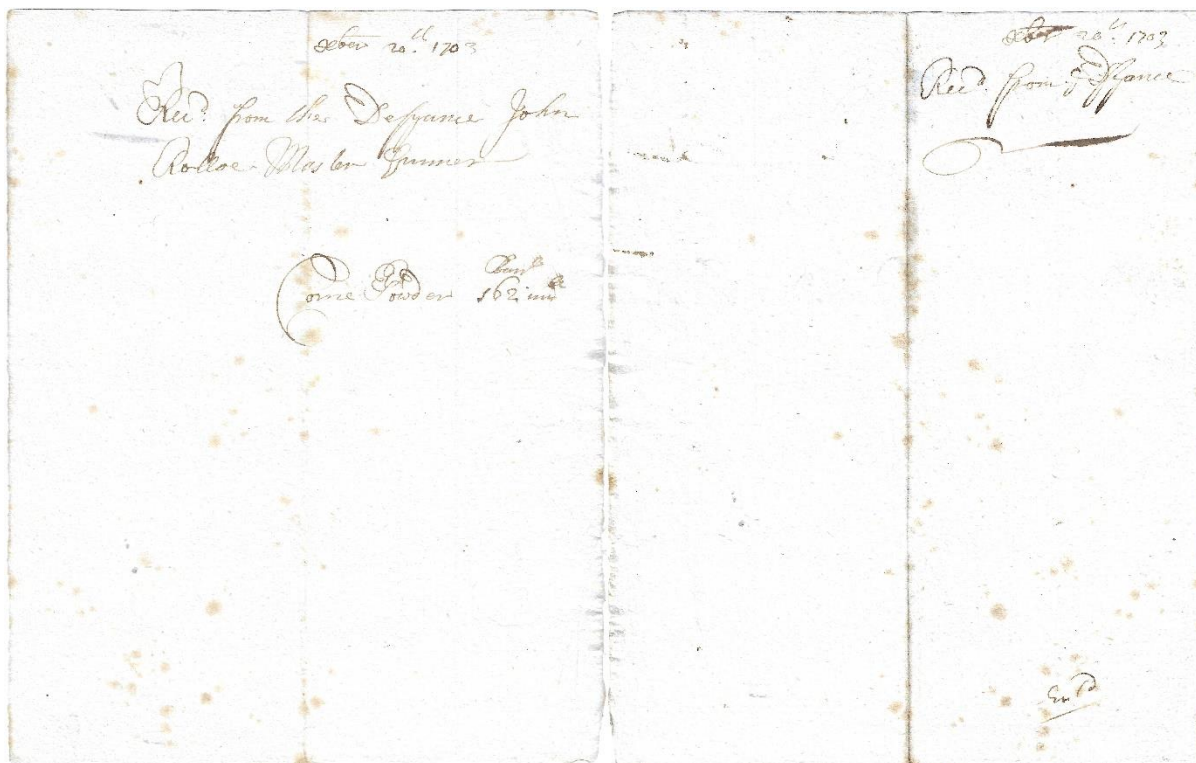 xber 20th 1703
Recd. from the Deffiance John
Master Gunner
Corne Powder 162
xber 20th 1703
Recd. from ye Deffiance
Entd